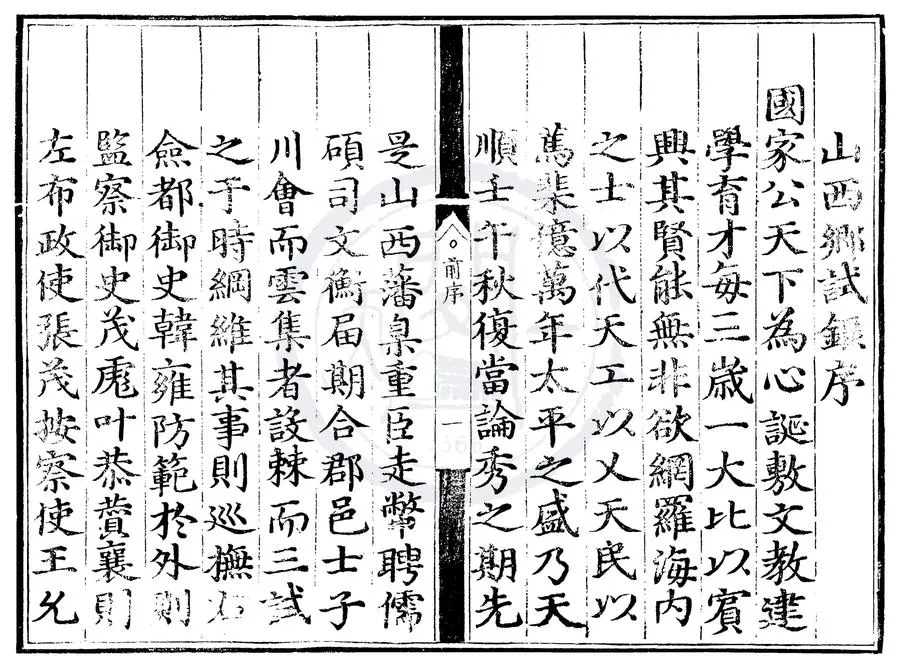 山西鄉試錄序
國家公天下為心誕敷文教建
學育才每三歲一大比以賓
興其賢能無非欲網羅海內
之士以代天工以乂天民以
篤棐億萬年太平之盛乃天
順壬午秋復當論秀之期先
前序
一
是山西藩臬重臣走幣聘儒
碩司文衡屆期合郡邑士子
川會而雲集者設棘而三試
之于時綱維其事則巡撫右
僉都御史韓雍防範於外則
監察御史茂彪叶恭贊襄則
左布政使張茂按察使王允